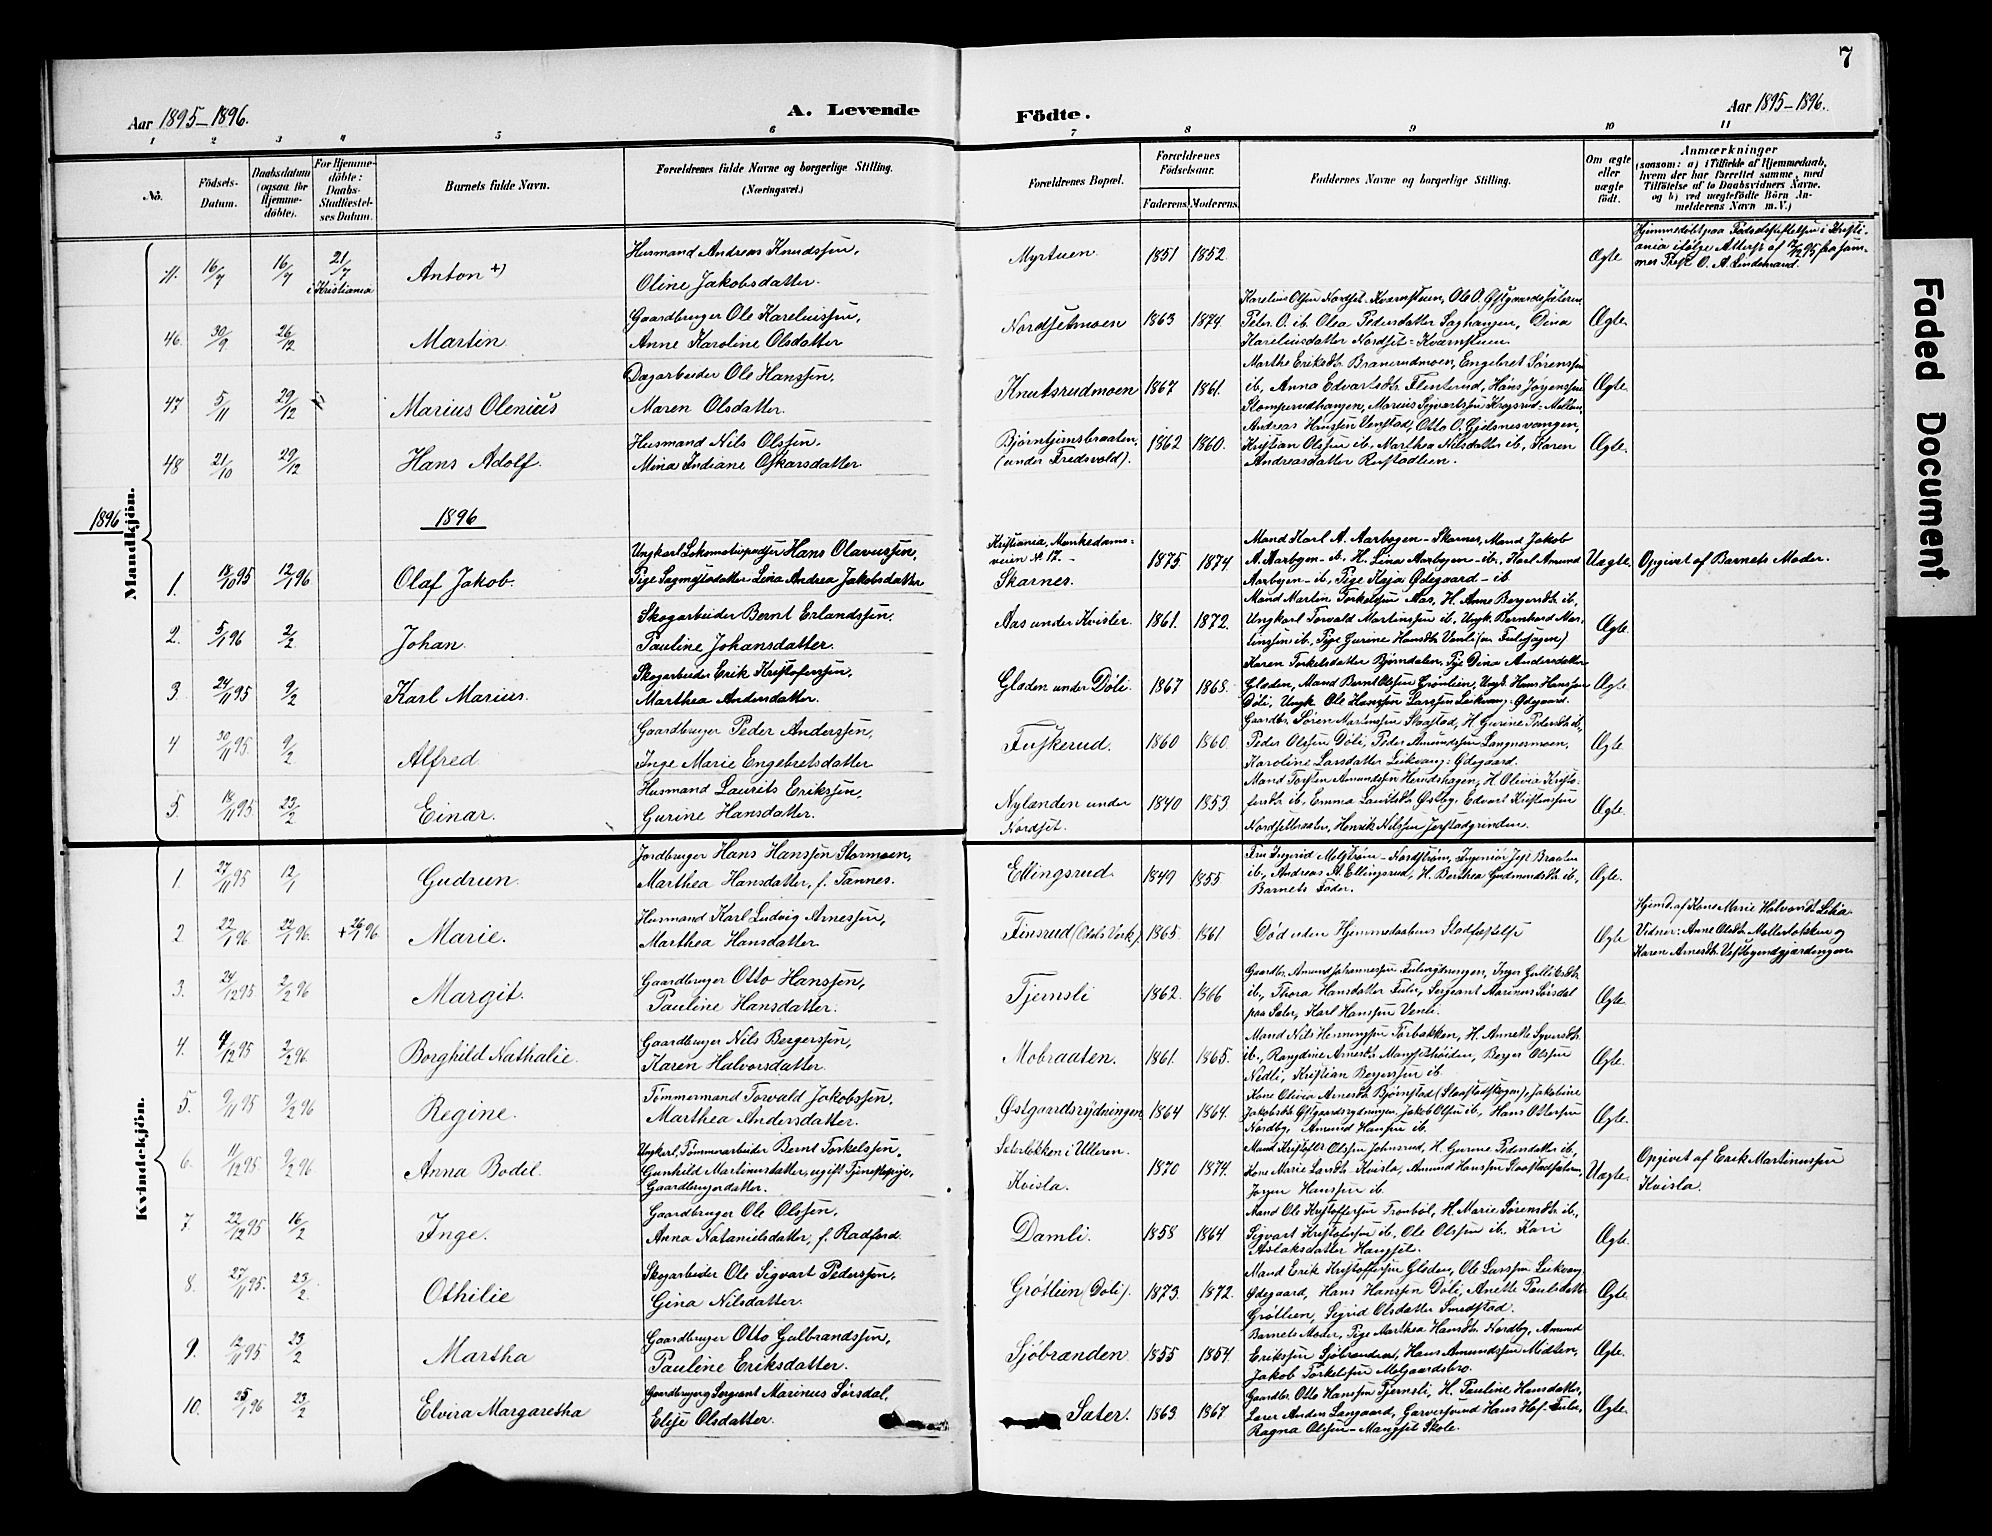 7
Aar 1895-1896.
A. Levende
Födte.
Aar 1895-1896.
1 2 3 4 5 6 7 8 9 10 11
No.
Födsels-
Datum.
Daabsdatum
(ogsaa for
Hjemme-
döbte).
For Hjemme-
döbte:
Daabs-
Stadfæstel-
ses Datum.
Barnets fulde Navn.
Forældrenes fulde Navne og borgerlige Stilling.
(Næringsvei.)
Forældrenes Bopæl.
Forældrenes
Födselsaar.
Faderens. Moderens.
Faddernes Navne og borgerlige Stilling.
Om ægte
eller
uægte
födt.
Anmærkninger
(saasom: a) i Tilfælde af Hjemmedaab,
hvem der har forrettet samme, med
Tilföielse af to Daabsvidners Navne.
og b) ved uægtefödte Börn An-
melderens Navn m. V.)
Faded Document
Mandkjön.
16/7 16/7 21/7 i Kristiania
Anton +)
Husmand Andreas Knudssøn,
Oline Jakobsdatter.
Myrtuen 1851 1852
Ægte
Hjemmedöbt paa Födselsstiftelsen i Kristi-
ania ifølge Attest af 7/12 95 fra sam-
mes Prest O. A. Lindemand.
46 30/9 26/12
Martin
Gaardbruger Ole Kareliussøn,
Anne Karoline Olsdatter
Nordsetmoen 1863 1874.
Karelius Olsøn Nordset-Kværnstuen, Ole O. Østgaardssæteren
Peter O. ib. Olea Pedersdatter Saghaugen, Dina
Kareliusdatter Nordset-Kværnstuen
Ægte
47 5/11 29/12
Marius Olenius
Dagarbeider Ole Hanssøn,
Maren Olsdatter.
Knutsrudmoen 1867 1861.
Marthe Eriksdtr. Branerudmoen, Engebret Sørenssøn
ib., Anna Edvartsdtr. Flenterud, Hans Jøgenssøn
Stomperudhaugen, Marius Sigvartssøn Krogsrud-Mellom
Ægte.
48 21/10 29/12
Hans Adolf.
Husmand Nils Olssøn.
Mina Indiane Oskarsdatter
Bjørntjernsbraaten,
(under Fredsvold). 1862 1860.
Andreas Hanssøn Venstad, Otto O. Gjedenesvangen,
Kristian Olssøn ib., Marthea Nilsdatter ib., Karen
Andreasdatter Rustadlien.
Ægte.
1896
1896
1. 18/10 95 12/1 96
Olaf Jakob.
Ungkarl Lokomotivpudser Hans Olavussøn,
Pige Sagmesterdatter Lina Andrea Jakobsdatter
Kristiania, Munkedams-
veien № 17. -
Skarnes. 1875. 1874.
Mand Karl A. Aarbogen-Skarnes, Mand Jakob
A. Aarbogen - ib. H. Lina Aarbogen - ib., Karl Amund
Aarbogen - ib., Pige Kaja Ødegaard - ib
Uægte. Opgivet af Barnets Moder.
2. 5/1 96 2/2
Johan.
Skogarbeider Bernt Erlandssøn.
Pauline Johansdatter.
Aas under Kvisler. 1861. 1872.
Mand Martin Torkelssøn Aas, H. Anne Bergersdtr. ib.,
Ungkarl Torvald Martinssøn ib. Ungk. Bernhard Mar-
tinssøn ib., Pige Gurine Hansdtr. Venli
Ægte
3. 24/11 95 9/2
Karl Marius.
Skogarbeider Erik Kristofersøn,
Marthea Andersdatter.
Gladen under Døli. 1867 1868.
Karen Torkelsdatter Bjørndalen, Pige Dina Andersdatter
Gladen, Mand Bernt Olssøn Grønlien, Ungk. Hans Hanssøn
Døli, Ungk. Ole Hanssøn Larssøn Leikvang-Ødegaard.
Ægte
4 30/11 95. 9/2
Alfred.
Gaardbruger Peder Anderssøn,
Inge Marie Engebretsdatter
Fuskerud. 1860 1860.
Gaardbr. Søren Martinssøn Skogstad, H. Gurine Pedersdtr. ib.,
Peder Olssøn Døli, Peder Amundssøn Langnesmoen,
Karoline Larsdatter Leikvang-Ødegaard.
Ægte
5. 18/11 95 23/2
Einar.
Husmand Laurits Erikssøn,
Gurine Hansdatter.
Nylanden under
Nordset. 1840 1853.
Mand Torsten Amundssøn Herudshagen, H. Olivia Kristo-
fersdtr. ib., Emma Lauritsdtr. Østby, Edvart Kristianssøn
Nordsetbraaten, Henrik Nilssøn Jerstadgrinden.
Ægte
Kvindekjön.
1. 27/11 95 12/1
Gudrun.
Jordbruger Hans Hanssøn Stormoen,
Marthea Hansdatter, f. Tannes.
Ellingsrud 1849 1855.
Fru Ingrid Melstrøm-Nordstrøm, Ingeniør Braaten
ib., Andreas A. Ellingsrud, H. Berthea Gudmundsdtr. ib.,
Barnets Fader.
Ægte.
2 22/1 96 22/1 96. + 26/1 96
Marie.
Husmand Karl Ludvig Arnessøn,
Marthea Hansdatter.
Finsrud (Odals Værk). 1865. 1861
Död uden Hjemmedaabens Stadfæstelse
Ægte
Hjemd. af Kone Marie Halvorsdt. Lilia
Vidner: Anne Olsdtr. Mellesløkken og
Karen Arnesdtr. Vestbygendgjærdingen
3. 24/12 95 2/2 96
Margit.
Gaardbruger Otto Hanssøn,
Pauline Hansdatter.
Tjernsli 1862. 1866
Gaardbr. Amund Johannessøn Fulurydningen, Inger Gulliksdtr.
ib., Thora Hansdatter Fuler, Sergeant Marinus Sørsdal
paa Sæter, Karl Hanssøn Venli.
Ægte
4. 4/12 95 2/2 96
Borghild Nathalie.
Gaardbruger Nils Bergerssøn,
Karen Halvorsdatter.
Mobraaten. 1861. 1865.
Mand Nils Henningssøn Torbakken, H. Annette Syversdtr.
ib., Rangdine Arnesdtr. Mangsethøiden, Berger Olssøn
Nedli, Kristian Bergerssøn ib.
Ægte.
5. 9/11 95 9/2 96
Regine.
Tømmermand Torvald Jakobssøn.
Marthea Andersdatter.
Østgaardsrydningen 1864 1864.
Kone Olivia Arnesdtr. Bjørnstad (Slaastadskogen), Jakobine
Jakobsdtr. Østgaardsrydningen, Jakob Olssøn ib., Hans Ottersøn
Nordby, Amund Hanssøn ib.
Ægte.
6. 11/12 95 9/2 96
Anna Bodil.
Ungkarl, Tømmerarbeider Bernt Torkelssøn,
Gunhild Martinusdatter, ugift Tjenestepige,
Gaardbrugerdatter.
Sæterløkken i Ulleren.
Kvisla. 1870 1874.
Mand Kristoffer Olssøn Johnsrud, H. Gurine Pedersdatter ib.,
Kone Marie Larsdtr. Kvisla, Amund Hanssøn Slaastadsæteren,
Jørgen Hanssøn ib.
Uægte.
Opgivet af Erik Martinussøn
Kvisla.
7 22/12 95 16/2
Inge.
Gaardbruger Ole Olssøn.
Anna Natanielsdatter, f. Radford.
Damli. 1858 1864
Mand Ole Kristofferssøn Tronbøl, H. Marie Sørensdtr. ib.,
Sigvart Kristofersøn ib., Ole Olssøn ib., Kari
Aslaksdatter Hangset.
Ægte.
8. 27/11 95. 23/2
Othilie
Skogarbeider Ole Sigvart Pederssøn.
Gina Nilsdatter.
Grøtlien (Døli). 1873. 1872.
Mand Erik Kristofferssøn Gladen, Ole Larssøn Leikvang
Ødegaard, Hans Hanssøn Døli, Anette Paulsdatter
Grøtlien, Sigrid Olsdatter Smedstad.
Ægte
9. 12/11 95 23/2
Martha
Gaardbruger Otto Gulbrandssøn,
Pauline Eriksdatter.
Sjøbranden 1855 1854.
Barnets Moder, Pige Marthea Hansdtr. Nordby, Amund
Erikssøn Sjøbranden, Hans Amundssøn Midtun,
Jakob Torkelssøn Melgaardsbro.
Ægte.
10. 25/1 96 23/2
Elvira Margaretha
Gaardbruger og Sergeant Marinus Sørsdal,
Elise Olsdatter.
Sæter. 1863 1867.
Gaardbr. Otto Hanssøn Tjernsli, H. Pauline Hansdatter,
Lærer Anders Langaard, Garversvend Hans Hof-Fuler,
Ragna Olssøn-Mangset Skole.
Ægte.